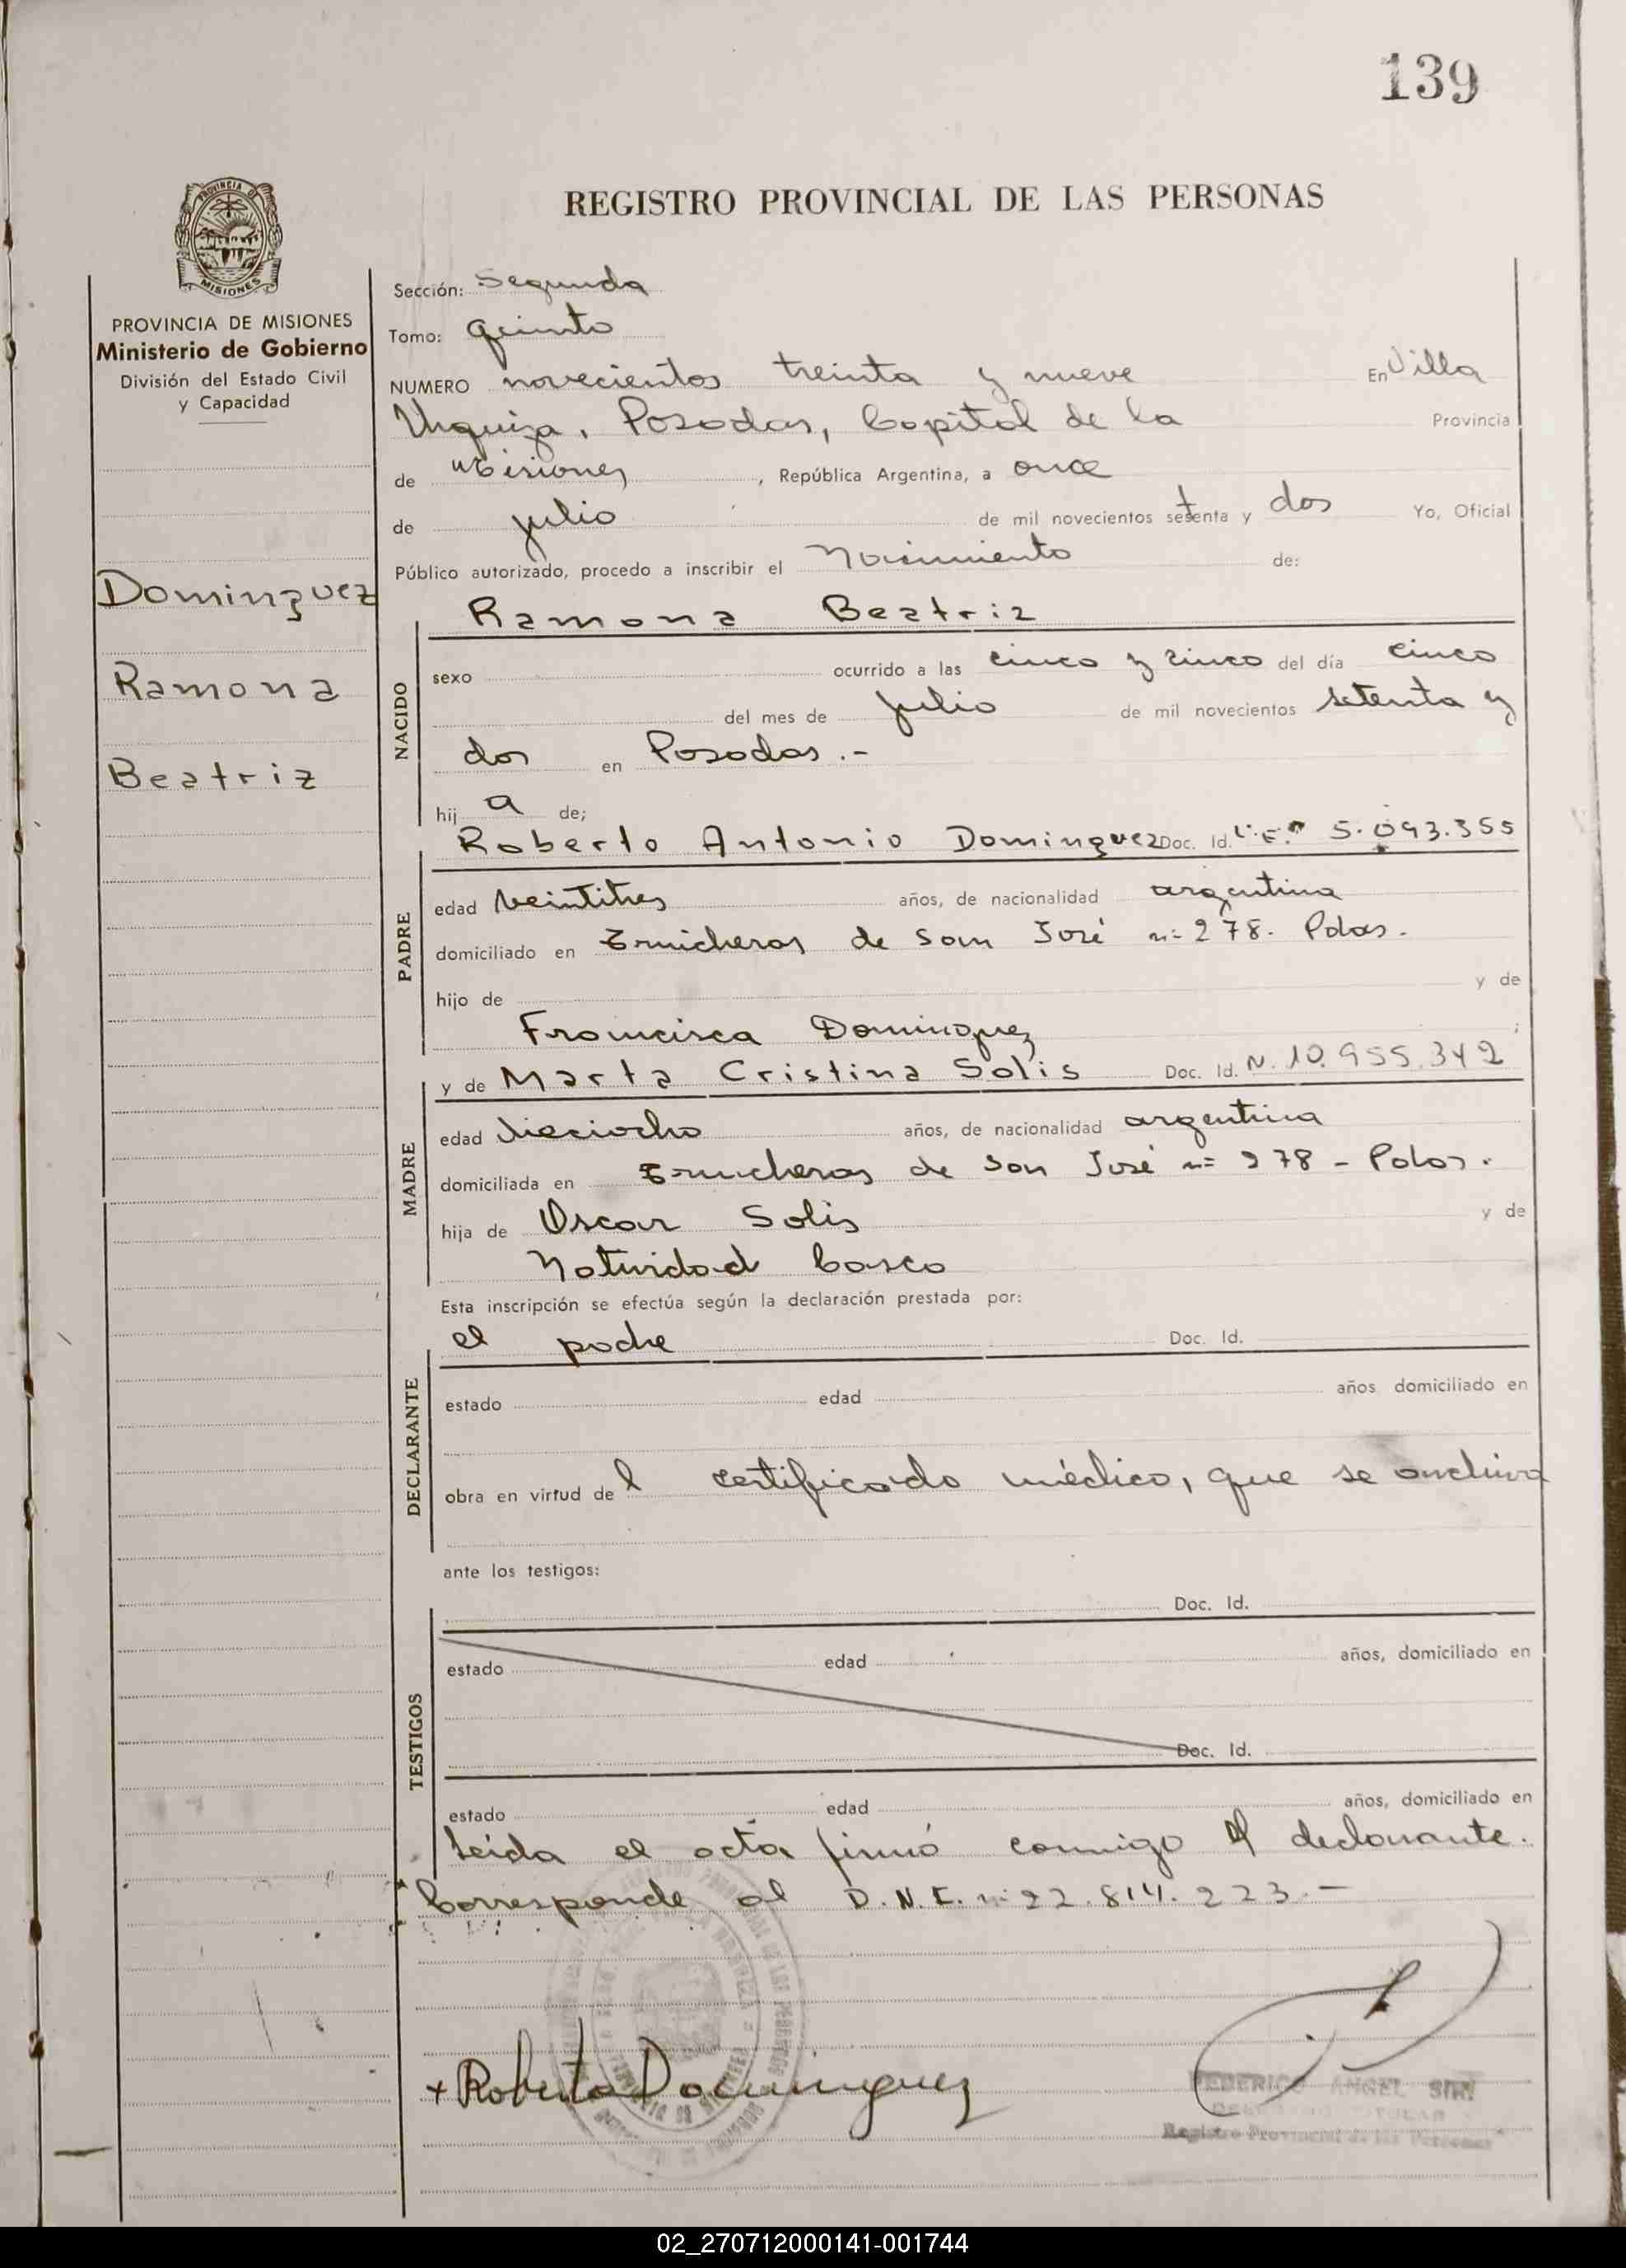 139
REGISTRO PROVINCIAL DE LAS PERSONAS
PROVINCIA DE MISIONES
PROVINCIA DE MISIONES
Ministerio de Gobierno
División del Estado Civil
y Capacidad
Dominguez
Ramona
Beatriz
Sección: Segunda
Tomo: quinto
NUMERO novecientos treinta y nueve En Villa
Urquiza, Posadas, Capital de la Provincia
de Misiones, República Argentina, a once
de julio de mil novecientos setenta y dos Yo, Oficial
Público autorizado, procedo a inscribir el Nacimiento de:
Ramona Beatriz
NACIDO
sexo ocurrido a las cinco y cinco del día cinco
del mes de julio de mil novecientos setenta y
dos en Posadas.-
hij a de;
Roberto Antonio Dominguez Doc. Id. L.E. 5.093.355
PADRE
edad veintitres años, de nacionalidad argentina
domiciliado en Trincheras de San José n= 278. Pdas.
hijo de y de
Francisca Dominguez ;
y de Marta Cristina Solis Doc. Id. N. 10.955.342
MADRE
edad dieciocho años, de nacionalidad argentina
domiciliada en Trincheras de San José n= 278 - Pdas.
hija de Oscar Solis y de
Natividad Casco
Esta inscripción se efectúa según la declaración prestada por:
el padre Doc. Id.
DECLARANTE
estado edad años domiciliado en
obra en virtud del certificado médico, que se archiva
ante los testigos:
Doc. Id.
TESTIGOS
estado edad años, domiciliado en
Doc. Id.
estado edad años, domiciliado en
Leída el acta firmó conmigo el declarante.
Corresponde al D.N.I. n: 22.814.223.-
+ Roberto Dominguez
FEDERICO ANGEL
Registro Provincial de las Personas
02_270712000141-001744